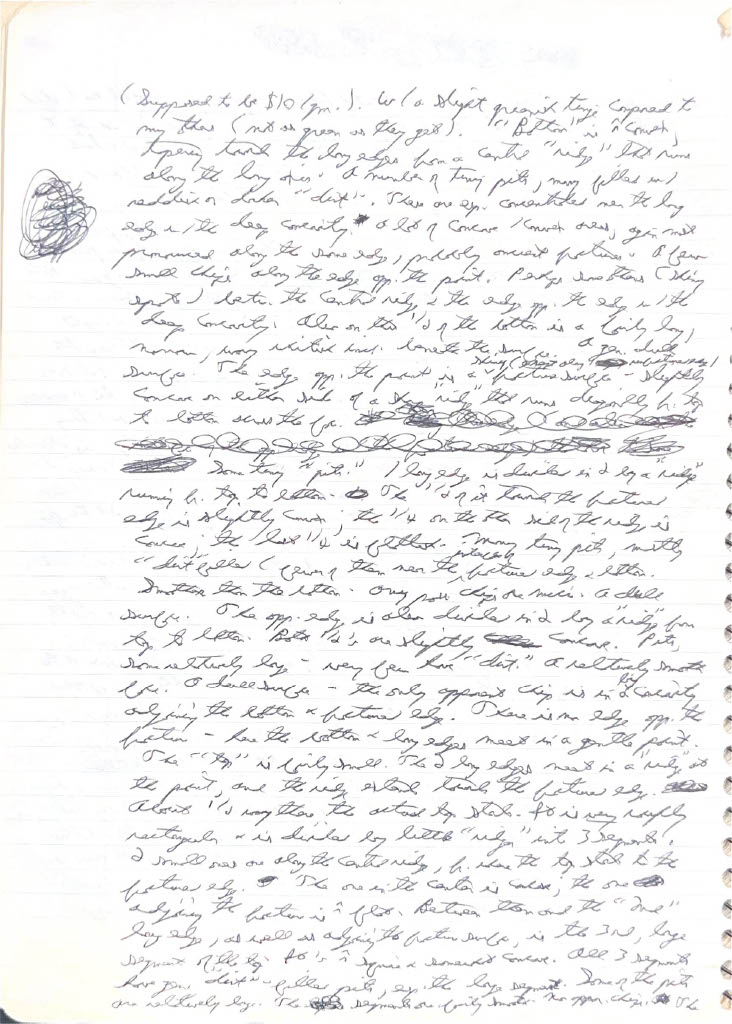 (Supposed to be $10/gm.). W/ a slight greenish tinge compared to
my others (not as green as they get). "Bottom" is ^ convex,
tapering towards the long edges from a centre "ridge" that runs
along the long axis. A number of tiny pits, many filled w/
reddish or darker "dirt". These are esp. concentrated near the long
edge w/ the deep concavity. A lot of concave/convex areas, again most
pronounced along the same edge, probably ancient fractures. A few
small chips along the edge opp. the point. Perhaps smoother (shiny
spots) betw. the centre ridge & the edge opp. the edge w/ the
deep concavity. Also on this 1/2 of the bottom is a fairly long,
narrow, wavy whitish incl. beneath the surface. A gen. dull
surface. The edge opp. the point is a fracture surface - slightly
concave on either side of a "ridge" that runs diagonally fr. top
to bottom across the face.
Some tiny "pits." 1 long edge is divided in 2 by a "ridge"
running fr. top to bottom. The 1/2 of it towards the fracture
edge is slightly convex; the 1/4 on the other side of the ridge is
concave; the last 1/4 is flattish. Many tiny pits, mostly
"dirt" filled (fewer of them near the fracture edge & bottom.
Smoother than the bottom. Any poss. chips are micro. A dull
surface. The opp. edge is also divided in 2 by a "ridge" from
top to bottom. Both 1/2's are slightly concave. Pits,
some relatively large - very few have "dirt." A relatively smooth
face. A dull surface - the only apparent chip is in a concavity
adjoining the bottom & fracture edge. There is no edge opp. the
fracture - here the bottom & long edges meet in a gentle point.
The "top" is fairly small. The 2 long edges meet in a "ridge" at
the point, and the ridge extends towards the fracture edge.
About 1/2 way there, the actual top starts. It is very roughly
rectangular & is divided by little "ridges" into 3 segments.
2 small ones are along the centre ridge, fr. where the top starts to the
fracture edge. The one in the center is concave, the one
adjoining the fracture is ^ flat. Between them and the "2nd"
long edge, as well as adjoining the fracture surface, is the 3rd, large
segment of the top. It's ^ square & somewhat concave. All 3 segments
have gen. "dirt"-filled pits, esp. the large segment. Some of the pits
are relatively large. The segments are fairly smooth. No appar. chips. The